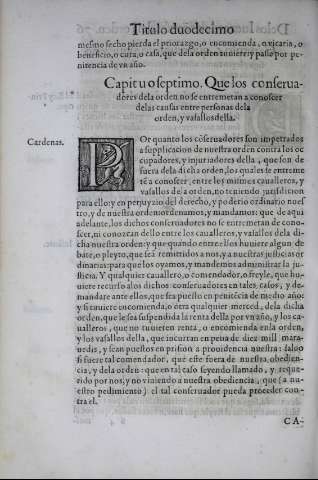 Titulo duodecimo
mesmo fecho pierda el priorazgo, o encomienda, o vicaria, o
beneficio, o cura, o casa, que dela orden tuuiere y passe por pe-
nitencia de vn año.
Capitu o septimo. Que los conserua-
dores dela orden no se entremetan a conoscer
delas causas entre personas dela
orden, y vasallos della.
Cardenas.
POr quanto los cōseruadores son impetrados
a supplicacion de nuestra orden contra los oc
cupadores, y injuriadores della, que son de
fuera dela dicha orden, los quales se entreme
tē a conoscer, entre los mismos caualleros, y
vasallos de a orden, no teniendo jurisdicion
para ello: y en perjuyzio del derecho, y poderio ordinario nues
tro, y de nuestra orden: ordenamos, y mandamos: que de aqui
adelante, los dichos conseruadores no se entremetan de conos-
cer, ni conozcan dello entre los caualleros, y vasallos dela di-
cha nuestra orden: y que quando entre ellos huuiere algun de
bate, o pleyto, que seā remitidos a nos, y a nuestras justicias or
dinarias: para que los oyamos, y mandemos administrar la ju-
sticia. Y qualquier cauallero, comendador, o freyle, que hu-
uiere recurso alos dichos conseruadores en tales casos, y de-
mandare ante ellos, que sea puesto en penitēcia de medio año:
y si tuuiere encomienda, o otra qualquier merced, dela dicha
orden, que le sea suspendida la renta della por vn año, y los ca-
ualleros, que no tuuieren renta, o encomienda enla orden,
y los vasallos della, que incurran en pena de diez mill mara-
uedis, y sean puestos en prision a prouidencia nuestra: saluo
si fuere tal comendador, que este fuera de nuestra obedien-
cia, y dela orden: que en tal caso seyendo llamado, y reque-
rido por nos, y no viniendo a nuestra obediencia, que (a nue
stro pedimiento) el tal conseruador pueda proceder con-
tra el.
CA-